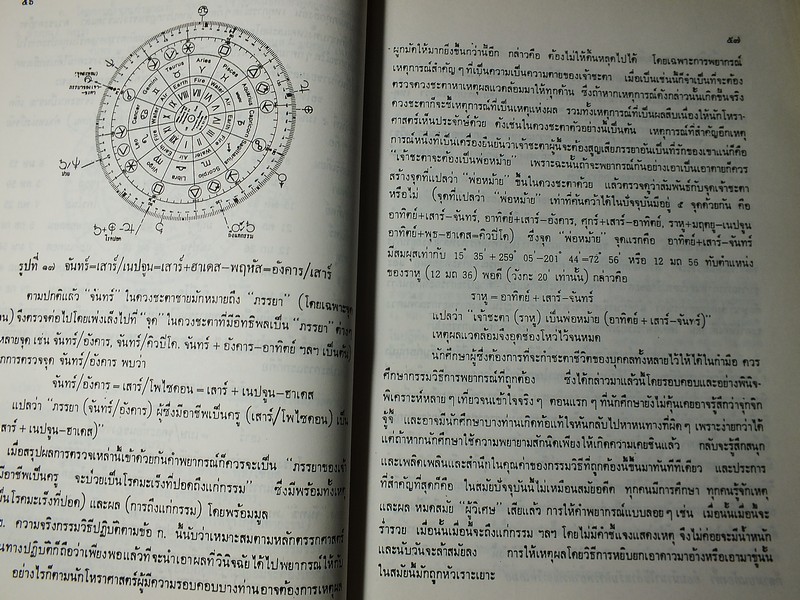 ๕๖
Aries
Pisces
Aquarius
Capricorn
Sagittarius
Scorpio
Libra
Virgo
Leo
Cancer
Gemini
Taurus
รูปที่ ๑๗ จันทร์=เสาร์/เนปจูน=เสาร์+ฮาเดส-พฤหัส=อังคาร/เสาร์
ตามปกติแล้ว "จันทร์" ในดวงชะตาชายมักหมายถึง "ภรรยา" (โดยเฉพาะจุด
จึงตรวจต่อไปโดยเพ่งเล็งไปที่ "จุด" ในดวงชะตาที่มีอิทธิพลเป็น "ภรรยา" ต่างๆ
หลายจุด เช่น จันทร์/อังคาร, จันทร์/คิวปิโด, จันทร์ + อังคาร-อาทิตย์ ฯลฯ เป็นต้น)
การตรวจจุด จันทร์/อังคาร พบว่า
จันทร์/อังคาร = เสาร์/โพไซดอน = เสาร์ + เนปจูน-ฮาเดส
แปลว่า "ภรรยา (จันทร์/อังคาร) ผู้ซึ่งมีอาชีพเป็นครู (เสาร์/โพไซดอน) เป็น
สาร์ + เนปจูน-ฮาเดส)"
เมื่อสรุปผลการตรวจเหล่านี้เข้าด้วยกันคำพยากรณ์ก็ควรจะเป็น "ภรรยาของเจ้า
มีอาชีพเป็นครู จะป่วยเป็นโรคมะเร็งที่ปอดถึงแก่กรรม" ซึ่งมีพร้อมทั้งเหตุ
เป็นโรคมะเร็งที่ปอด) และผล (การถึงแก่กรรม) โดยพร้อมมูล
ความจริงกรรมวิธีปฏิบัติตามข้อ ก. นี้นับว่าเหมาะสมตามหลักตรรกศาสตร์
นทางปฏิบัติก็ถือว่าเพียงพอแล้วที่จะนำเอาผลที่วินิจฉัยได้ไปพยากรณ์ให้กับ
อย่างไรก็ตามนักโหราศาสตร์ผู้มีความรอบคอบบางท่านอาจต้องการเหตุผล
๕๗
ผูกมัดให้มากยิ่งขึ้นกว่านี้อีก กล่าวคือ ต้องไม่ให้ดิ้นหลุดไปได้ โดยเฉพาะการพยากรณ์
เหตุการณ์สำคัญๆ ที่เป็นความเป็นความตายของเจ้าชะตา เมื่อเป็นเช่นนี้ก็จำเป็นที่จะต้อง
ตรวจดวงชะตาหาเหตุผลแวดล้อมมาให้ทุกด้าน ซึ่งถ้าหากเหตุการณ์ดังกล่าวนั้นเกิดขึ้นจริง
ดวงชะตาก็จะชี้เหตุการณ์ที่เป็นเหตุแห่งผล รวมทั้งเหตุการณ์ที่เป็นผลสืบเนื่องให้นักโหรา-
ศาสตร์เห็นประจักษ์ด้วย ดังเช่นในดวงชะตาตัวอย่างนี้เป็นต้น เหตุการณ์ที่สำคัญอีกเหตุ
การณ์หนึ่งที่เป็นเครื่องยืนยันว่าเจ้าชะตาผู้นี้จะต้องสูญเสียภรรยาอันเป็นที่รักของเขาแน่ก็คือ
"เจ้าชะตาจะต้องเป็นพ่อหม้าย" เพราะฉะนั้นถ้าจะพยากรณ์กันอย่างเอาเป็นเอาตายก็ควร
สร้างจุดที่แปลว่า "พ่อหม้าย" ขึ้นในดวงชะตาด้วย แล้วตรวจดูว่าสัมพันธ์กับจุดเจ้าชะตา
หรือไม่ (จุดที่แปลว่า "พ่อหม้าย" เท่าที่ค้นคว้าได้ในปัจจุบันมีอยู่ ๕ จุดด้วยกัน คือ
อาทิตย์+เสาร์-จันทร์, อาทิตย์+เสาร์-อังคาร, ศุกร์+เสาร์-อาทิตย์, ราหู+มฤตยู-เนปจูน
อาทิตย์+พุธ-ฮาเดส=คิวปิโด) ซึ่งจุด "พ่อหม้าย" จุดแรกคือ อาทิตย์+เสาร์-จันทร์
มีสมผุสเท่ากับ 15° 35′ + 259° 05′ -201° 44′ =72° 56′ หรือ 12 มถ 56 ทับตำแหน่ง
ของราหู (12 มถ 36) พอดี (วังกะ 20′ เท่านั้น) กล่าวคือ
ราหู = อาทิตย์ + เสาร์-จันทร์
แปลว่า "เจ้าชะตา (ราหู) เป็นพ่อหม้าย (อาทิตย์ + เสาร์-จันทร์)"
เหตุผลแวดล้อมจึงอุดช่องโหว่ไว้จนหมด
นักศึกษาผู้ซึ่งต้องการที่จะกำชะตาชีวิตของบุคคลทั้งหลายไว้ให้ได้ในกำมือ ควร
ศึกษากรรมวิธีการพยากรณ์ที่ถูกต้อง ซึ่งได้กล่าวมาแล้วนี้โดยรอบคอบและอย่างพินิจ-
พิเคราะห์หลายๆ เที่ยวจนเข้าใจจริงๆ ตอนแรกๆ ที่นักศึกษายังไม่คุ้นเคยอาจรู้สึกว่าจุกจิก
จู้จี้ และอาจมีนักศึกษาบางท่านเกิดท้อแท้ใจหันกลับไปหาหนทางที่ผิดๆ เพราะง่ายกว่าได้
แต่ถ้าหากนักศึกษาใช้ความพยายามสักนิดเพียงให้เกิดความเคยชินแล้ว กลับจะรู้สึกสนุก
และเพลิดเพลินและสำนึกในคุณค่าของกรรมวิธีที่ถูกต้องนี้ขึ้นมาทันทีทีเดียว และประการ
ที่สำคัญที่สุดก็คือ ในสมัยปัจจุบันนี้ไม่เหมือนสมัยอดีต ทุกคนมีการศึกษา ทุกคนรู้จักเหตุ
และผล หมดสมัย "ผู้วิเศษ" เสียแล้ว การให้คำพยากรณ์แบบลอยๆ เช่น เมื่อนั้นเมื่อนี้จะ
ร่ำรวย เมื่อนั้นเมื่อนี้จะถึงแก่กรรม ฯลฯ โดยไม่มีคำชี้แจงแสดงเหตุ จึงไม่ค่อยจะมีน้ำหนัก
และนับวันจะล้าสมัยลง การให้เหตุผลโดยวิธีการหยิบยกเอาดาวมาอ้างหรือเอามาขู่นั้น
ในสมัยนี้มักถูกหัวเราะเยาะ